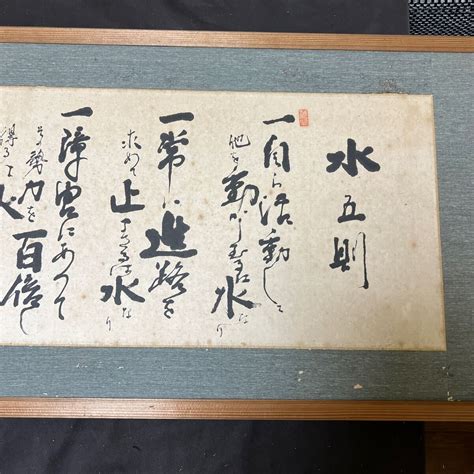 水五則
一自ら活動して
他を動かしむるは水なり
一常に進路を
求めて止まざるは水なり
一障害にあつて
勢力を百倍し